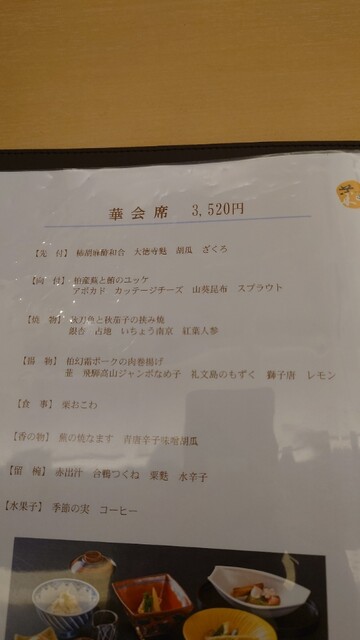 華会席 3,520円
【先 付】 柿胡麻酢和合 大徳寺麩 胡瓜 ざくろ
【向 付】 柏産蕪と鮪のユッケ
アボカド カッテージチーズ 山葵昆布 スプラウト
【焼 物】 秋刀魚と秋茄子の挟み焼
銀杏 占地 いちょう南京 紅葉人参
【揚 物】 柏幻霜ポークの肉巻揚げ
蓮 飛騨高山ジャンボなめ子 礼文島のもずく 獅子唐 レモン
【食 事】 栗おこわ
【香の物】 蕪の焼なます 青唐辛子味噌胡瓜
【留 椀】 赤出汁 合鴨つくね 粟麩 水辛子
【水菓子】 季節の実 コーヒー